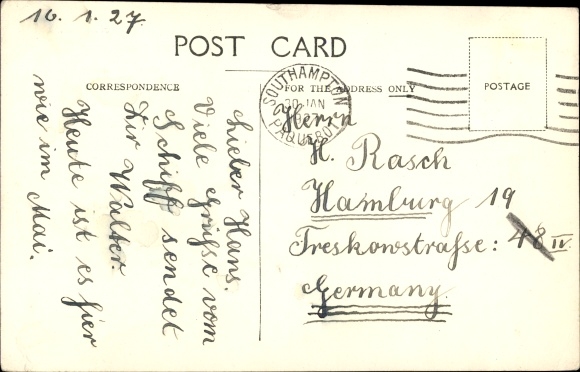 16. 1. 27.
POST CARD
CORRESPONDENCE
FOR THE ADDRESS ONLY
POSTAGE
SOUTHAMPTON
20 JAN
PAQUEBOT
Lieber Hans.
Viele Grüsse vom
Schiff sendet
Dir Walter.
Heute ist es hier
wie im Mai.
Herrn
H. Rasch
Hamburg 19
Treskowstraſse: 48 IV.
Germany